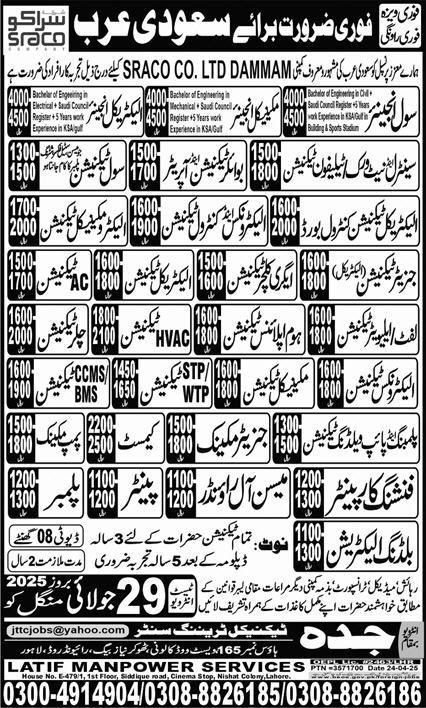 فوری ویزہ
فوری روانگی
فوری ضرورت برائے سعودی عرب
سراکو
SRACO
COMPANY
ہمارے معزز پرنسپل کو سعودی عرب کی مشہور و معروف کمپنی SRACO CO. LTD DAMMAM کیلئے درج ذیل تجربہ کار افراد کی ضرورت ہے
سول انجینئر
Bachelor of Engineering in Civil + Saudi Council Register +5 Years work Experience in KSA/Gulf in Building & Sports Stadium
4000
4500
ریال
مکینیکل انجینئر
Bachelor of Engineering in Mechanical + Saudi Council Register +5 Years work Experience in KSA/gulf
4000
4500
ریال
الیکٹریکل انجینئر
Bachelor of Engineering in Electrical + Saudi Council Register + 5 Years work Experience in KSA/gulf
4000
4500
ریال
سینٹرل سیٹ ورک/ٹیلیفون ٹیکنیشن 1500 1800
بوائلر ٹیکنیشن اینڈ آپریٹر 1500 1700
سول ٹیکنیشن 1300 1500
الیکٹریکل ٹیکنیشن کنٹرول بورڈ 1600 2000
الیکٹرونکس اینڈ کنٹرول ٹیکنیشن 1600 1900
الیکٹرو مکینیکل ٹیکنیشن 1700 2000
جنریٹر ٹیکنیشن (الیکٹریکل) 1600 1800
ایگری کلچر ٹیکنیشن 1500 1600
الیکٹریکل ٹیکنیشن 1600 1800
AC ٹیکنیشن 1500 1700
لفٹ/ایلیویٹر ٹیکنیشن 1600 2000
ہوم اپلائنس ٹیکنیشن 1600 1800
HVAC ٹیکنیشن 1800 2100
چلر ٹیکنیشن 1600 2000
الیکٹرونکس ٹیکنیشن 1600 1800
مکینیکل ٹیکنیشن 1600 1800
STP/WTP ٹیکنیشن 1450 1650
CCMS/BMS ٹیکنیشن 1600 1900
پلمبنگ اینڈ پائپ ویلڈنگ ٹیکنیشن 1300 1500
جنریٹر مکینک 1500 1800
کیمسٹ 2200 2500
پمپ مکینک 1500 1800
فنشنگ کارپینٹر 1200 1300
میسن آل راونڈر 1100 1200
پینٹر 1100 1200
پلمبر 1200 1300
بلڈنگ الیکٹریشن 1100 1300
نوٹ: تمام ٹیکنیشن حضرات کے لئے 3 سالہ ڈپلومہ کے بعد 5 سالہ تجربہ ضروری
ڈیوٹی 08 گھنٹے
مدت ملازمت 2 سال
رہائش/میڈیکل/ٹرانسپورٹ بذمہ کمپنی دیگر مراعات مقامی لیبر قوانین کے مطابق خواہشمند حضرات اپنے مکمل کاغذات کے ہمراہ تشریف لائیں
ٹیسٹ انٹرویو 29 جولائی بروز 2025 منگل کو
انٹرویو بمقام
جدہ ٹیکنیکل ٹریننگ سنٹر
jttcjobs@yahoo.com
ہاؤس نمبر 165 ویسٹ ووڈ کالونی ٹھوکر نیاز بیگ، رائیونڈ روڈ، لاہور
LATIF MANPOWER SERVICES
OEPL Lic. #2463/LHR
PTN =3571700 Date 24-04-25
House No. E-479/1, 1st Floor, Siddique road, Cinema Stop, Nishat Colony, Lahore.
0300-4914904/0308-8826185/0308-8826186